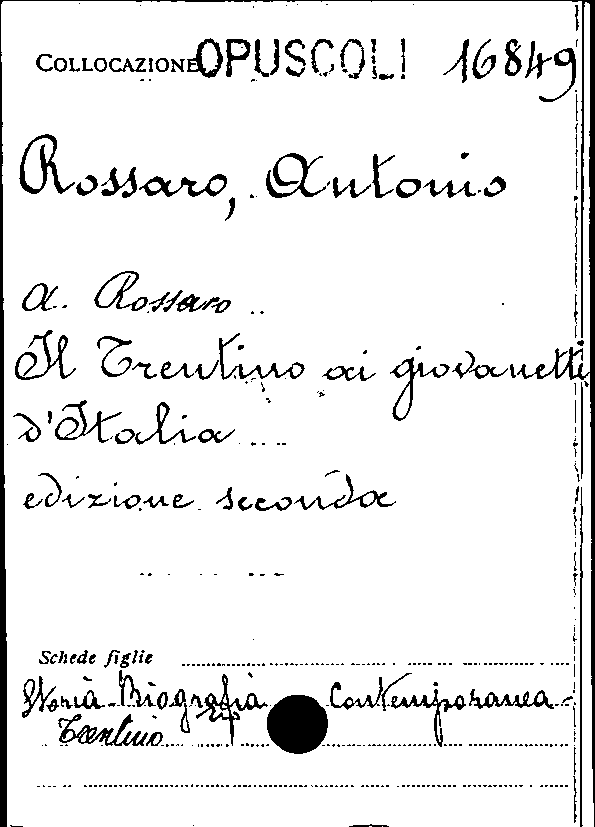 COLLOCAZIONE OPUSCOLI 16849
Rossaro, Antonio
A. Rossaro
Il Trentino ai giovanetti
d'Italia
edizione seconda
Schede figlie
Storia - Biografia Contemporanea -
Trentino